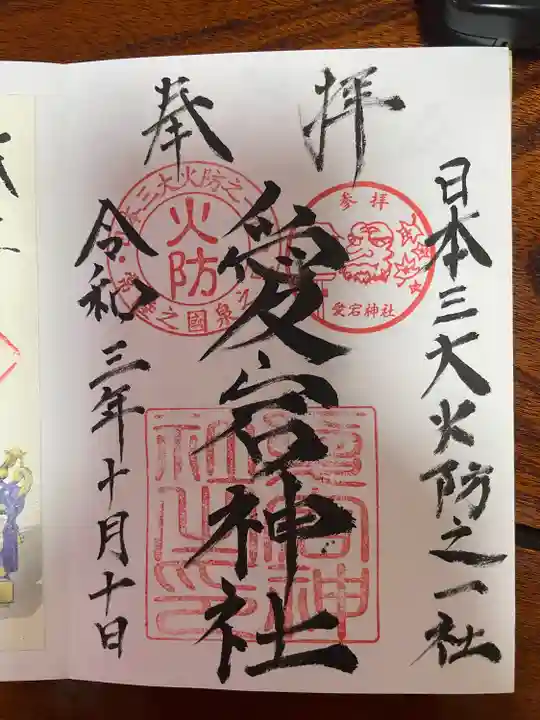 奉拝
日本三大火防之一社
愛宕神社
令和三年十月十日
三大火防之一
火防
参拝
愛宕神社
愛宕神社之印